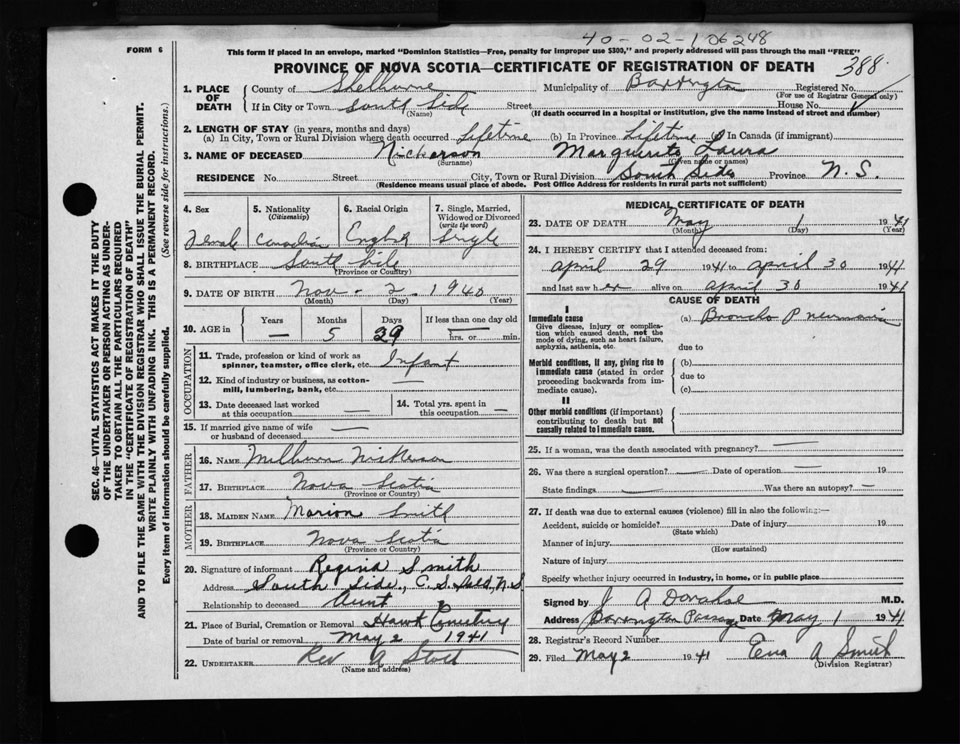 40-02-106248
FORM 6
This form if placed in an envelope, marked "Dominion Statistics—Free, penalty for improper use $300," and properly addressed will pass through the mail "FREE"
PROVINCE OF NOVA SCOTIA—CERTIFICATE OF REGISTRATION OF DEATH
388
SEC. 46—VITAL STATISTICS ACT MAKES IT THE DUTY
OF THE UNDERTAKER OR PERSON ACTING AS UNDER-
TAKER TO OBTAIN ALL THE PARTICULARS REQUIRED
IN THE "CERTIFICATE OF REGISTRATION OF DEATH"
AND TO FILE THE SAME WITH THE DIVISION REGISTRAR WHO SHALL ISSUE THE BURIAL PERMIT.
WRITE PLAINLY WITH UNFADING INK. THIS IS A PERMANENT RECORD.
Every item of information should be carefully supplied. (See reverse side for instructions.)
1. PLACE OF DEATH
County of Shelburne Municipality of Barrington Registered No.
(For use of Registrar General only)
If in City or Town South Side Street House No.
(Name) (If death occurred in a hospital or institution, give the name instead of street and number)
2. LENGTH OF STAY (in years, months and days)
(a) In City, Town or Rural Division where death occurred Lifetime (b) In Province Lifetime (c) In Canada (if immigrant)
3. NAME OF DECEASED Nickerson Marguerite Laura
(Surname) (Given name or names)
RESIDENCE No. Street City, Town or Rural Division South Side Province N.S.
(Residence means usual place of abode. Post Office Address for residents in rural parts not sufficient)
4. Sex Female
5. Nationality (Citizenship) Canadian
6. Racial Origin English
7. Single, Married, Widowed or Divorced (write the word) Single
8. BIRTHPLACE South Side
(Province or Country)
9. DATE OF BIRTH Nov - 2. 1940
(Month) (Day) (Year)
10. AGE in Years — Months 5 Days 29 If less than one day hrs. or min.
OCCUPATION
11. Trade, profession or kind of work as
spinner, teamster, office clerk, etc. Infant
12. Kind of industry or business, as cotton-
mill, lumbering, bank, etc. —
13. Date deceased last worked
at this occupation —
14. Total yrs. spent in
this occupation —
15. If married give name of wife
or husband of deceased —
FATHER
16. NAME Milburn Nickerson
17. BIRTHPLACE Nova Scotia
(Province or Country)
MOTHER
18. MAIDEN NAME Marion Smith
19. BIRTHPLACE Nova Scotia
(Province or Country)
20. Signature of informant Regina Smith
Address South Side, C. S. Isld, N.S.
Relationship to deceased Aunt
21. Place of Burial, Cremation or Removal Hawk Cemetery
Date of burial or removal May 2 1941
22. UNDERTAKER Rev A
(Name and address)
MEDICAL CERTIFICATE OF DEATH
23. DATE OF DEATH May 1 1941
(Month) (Day) (Year)
24. I HEREBY CERTIFY that I attended deceased from:
April 29 1941 to April 30 1941
and last saw her alive on April 30 1941
CAUSE OF DEATH
I
Immediate cause (a) Broncho Pneumonia
Give disease, injury or complica-
tion which caused death, not the
mode of dying, such as heart failure,
asphyxia, asthenia, etc.
due to
Morbid conditions, if any, giving rise to
immediate cause (stated in order
proceeding backwards from im-
mediate cause).
(b)
due to
(c)
II
Other morbid conditions (if important)
contributing to death but not
causally related to immediate cause.
25. If a woman, was the death associated with pregnancy? —
26. Was there a surgical operation? — Date of operation — 19
State findings — Was there an autopsy? —
27. If death was due to external causes (violence) fill in also the following:—
Accident, suicide or homicide? Date of injury 19
(State which)
Manner of injury
(How sustained)
Nature of injury
Specify whether injury occurred in industry, in home, or in public place
Signed by J A Donahoe M.D.
Address Barrington Passage Date May 1 1941
28. Registrar's Record Number
29. Filed May 2 1941 Ena A Smith
(Division Registrar)